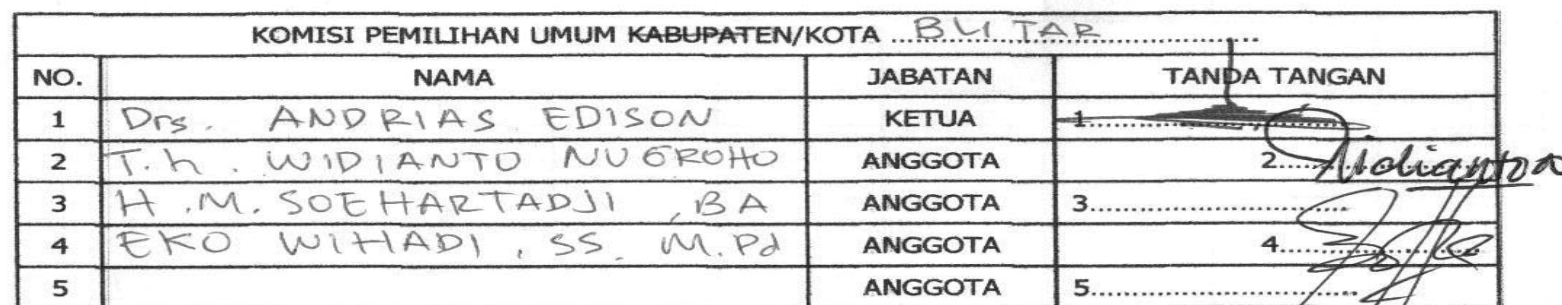 KOMISI PEMILIHAN UMUM KABUPATEN/KOTA ...BLITAR...
NO. NAMA JABATAN TANDA TANGAN
1 Drs. ANDRIAS EDISON KETUA 1...
2 T.h. WIDIANTO NUGROHO ANGGOTA 2... Widianto
3 H.M. SOEHARTADJI, BA ANGGOTA 3...
4 EKO WIHADI, SS, M.Pd ANGGOTA 4...
5 ANGGOTA 5...